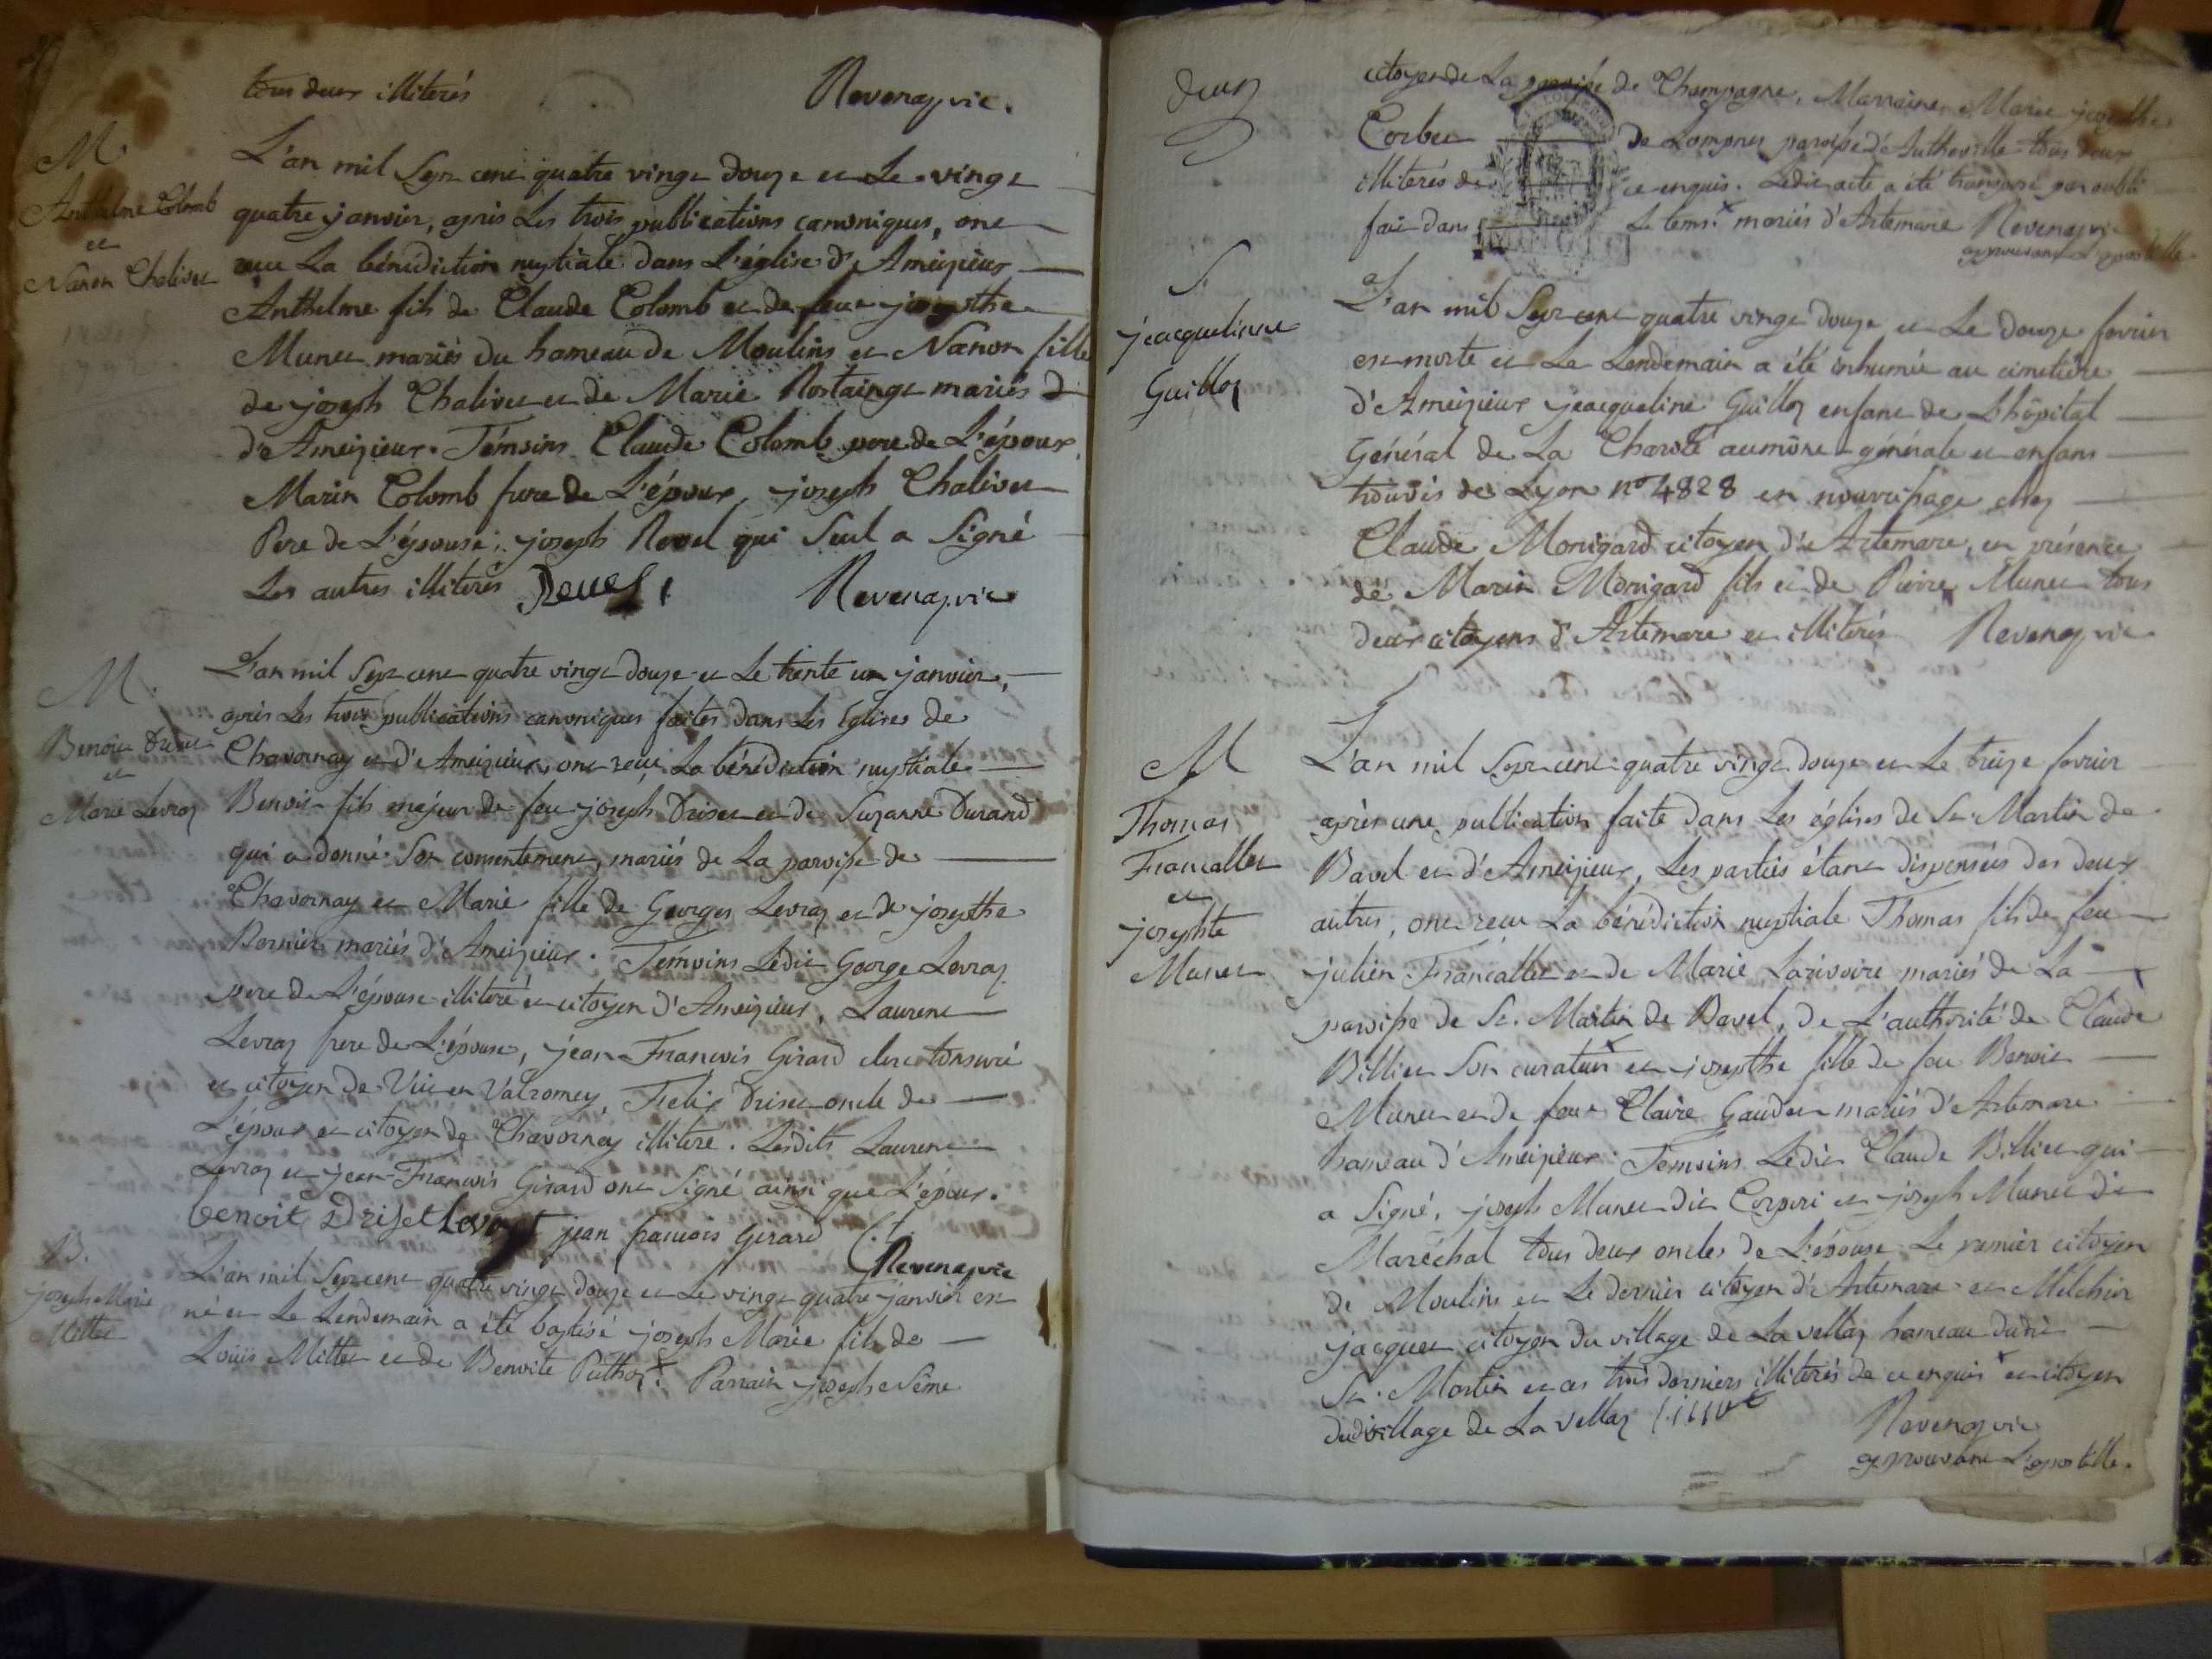 tous deux illiterés Revenaz vic.
M.
Anthelme Colomb
et
Nanon Chalivet
L'an mil Sept cent quatre vingt douze et Le vingt
quatre janvier, après Les trois publications canoniques, ont
reçu La bénédiction nuptiale dans L'église d'Ameizieux
Anthelme fils de Claude Colomb et de feue josepthe
Munet mariés du hameau de Moulins et Nanon fille
de joseph Chalivet et de Marie Rostaingt mariés d
d'Ameizieux. Témoins Claude Colomb pere de L'époux,
Marin Colomb frere de L'époux, joseph Chalivet
Pere de L'épouse, joseph Revel qui Seul a Signé
Les autres illiterés Revel Revenaz vic
M.
Benoit Driset
et
Marie Levraz
L'an mil Sept cent quatre vingt douze et Le trente un janvier,
après Les trois publications canoniques faites dans Les Eglises de
Chavornay et d'Ameizieux, ont reçu La bénédiction nuptiale
Benoit fils majeur de feu joseph Driset et de Suzanne Durand
qui a donné Son consentement, mariés de La paroisse de
Chavornay et Marie fille de Georges Levraz et de josepthe
Bernier mariés d'Ameizieux. Témoins Ledit George Levraz
pere de L'épouse illiteré et citoyen d'Ameizieux, Laurent
Levraz frere de L'épouse, jean-François Girard clerc tonsuré
et citoyen de Vieu en Valromey, Felix Driset oncle de
L'époux et citoyen de Chavornay illiteré. Lesdits Laurent
Levraz et jean-François Girard ont Signé ainsi que L'époux.
benoit Driset Levrat jean francois Girard C. t.
Revenaz vic
B.
joseph Marie
Mittet
L'an mil Sept cent quatre vingt douze et Le vingt quatre janvier est
né et Le Lendemain a été baptisé joseph Marie fils de
Louis Mittet et de Benoite Puthoz.x Parrain joseph Sême
deux
citoyen de La paroisse de Champagne, Marraine Marie josepthe
Corbet de Lompnes paroisse d'Sutheville tous deux
illiterés de ce enquis. Ledit acte a été transposé par oubli
fait dans Le tems. x mariés d'Artemare Revenaz vic
approuvant L'apostille
S.
jeacqueline
Guilloz
L'an mil Sept cent quatre vingt douze et Le douze fevrier
est morte et Le Lendemain a été inhumée au cimetière
d'Ameizieux jeacqueline Guilloz enfant de L'hôpital
Général de La Charité aumône générale et enfans
trouvés de Lyon n° 4828 en nourrissage chez
Claude Monigard citoyen d'Artemare, en présence
de Marin Monigard fils et de Pierre Munet tous
deux citoyens d'Artemare et illiterés Revenaz vic
M
Thomas
Francallet
et
josephte
Munet
L'an mil Sept cent quatre vingt douze et Le treize fevrier
après une publication faite dans Les églises de St. Martin de
Bavel et d'Ameizieux, Les parties étant dispensées des deux
autres, ont reçu La bénédiction nuptiale Thomas fils de feu
julien Francallet et de Marie Larivoire mariés de La
paroisse de St. Martin de Bavel, de L'authorité de Claude
Billiet Son curateurx et josepthe fille de feu Benoit
Munet et de feue Claire Gaudet mariés d'Artemare
hameau d'Ameizieux. Témoins Ledit Claude Billiet qui
a Signé, joseph Munet dit Corperi et joseph Munet dit
Maréchal tous deux oncles de L'épouse Le premier citoyen
de Moulins et Le dernier citoyen d'Artemare et Melchior
jacquet citoyen du village de La vellaz hameau dudit
St. Martin et ces trois derniers illiterés de ce enquis x et citoyen
dud village de La vellaz
Revenaz vic
approuvant L'apostille.